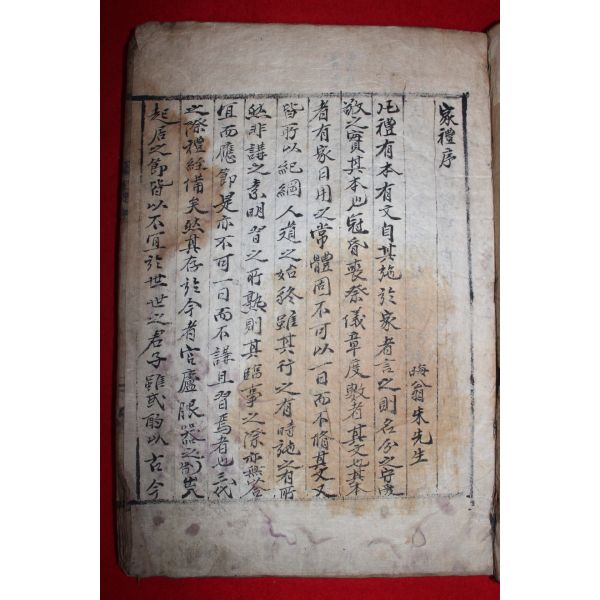 家禮序
晦翁朱先生
凡禮有本有文自其施於家者言之則名分之守愛
敬之實其本也冠昏喪祭儀章度數者其文也其本
者有家日用之常體固不可以一日而不脩其文又
皆所以紀綱人道之始終雖其行之有時施之有所
然非講之素明習之所熟則其臨事之際亦無以合
宜而應節是亦不可一日而不講且習焉者也三代
之際禮經備矣然其存於今者宮廬服器之制出入
起居之節皆以不宜於世世之君子雖或酌以古今